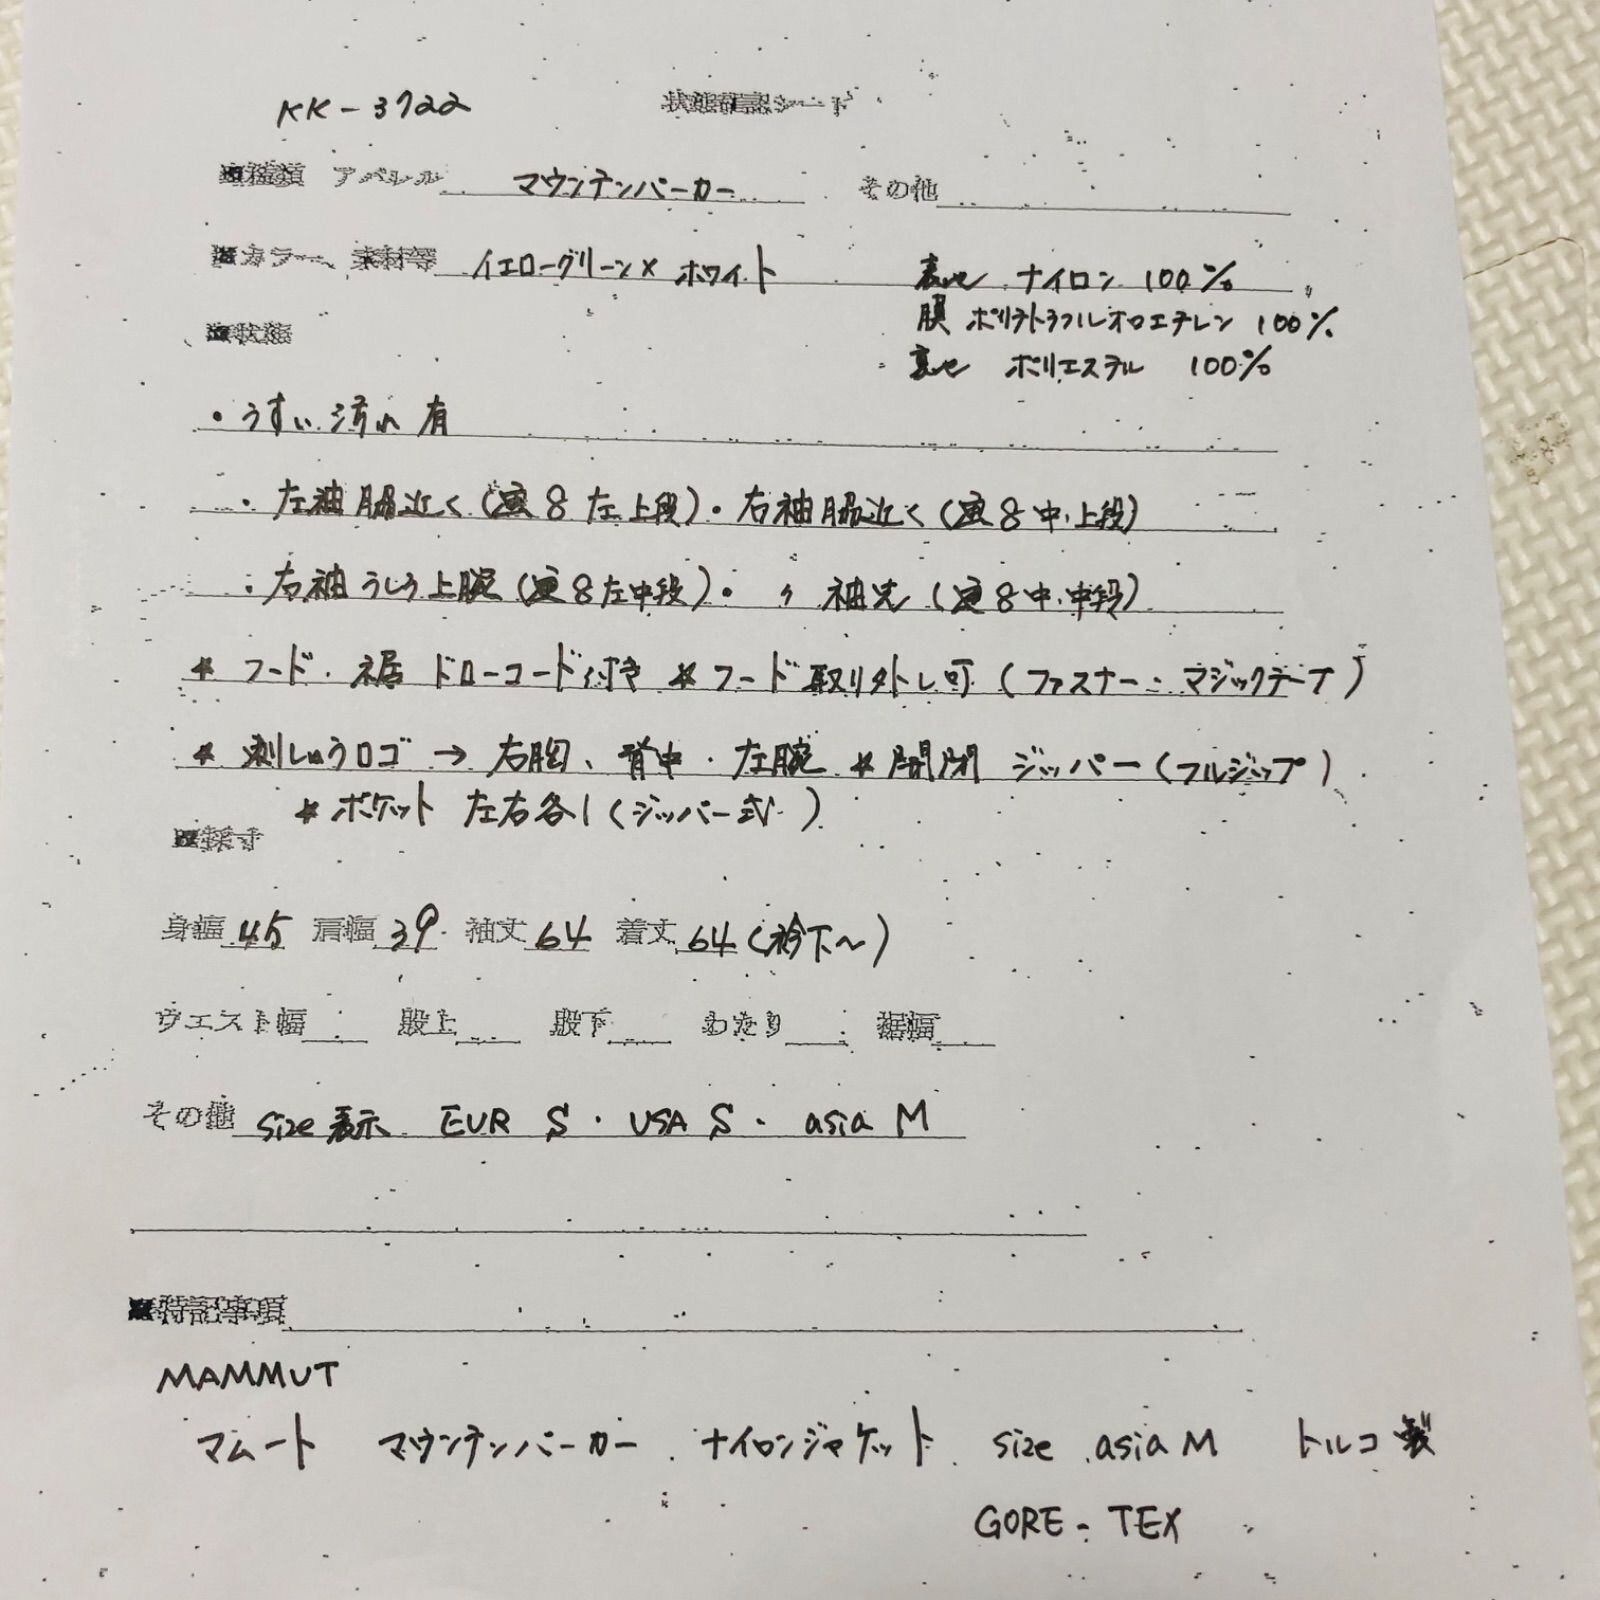 KK-3722 状態確認シート
■種類 アパレル マウンテンパーカー その他
■カラー、素材等 イエローグリーン×ホワイト 表地 ナイロン 100%
膜 ポリテトラフルオロエチレン 100%
■状態 裏地 ポリエステル 100%
・うすい汚れ有
・左袖脇近く(画8左上段)・右袖脇近く(画8中.上段)
・右袖うしろ上腕(画8左中段)・〃 袖先(画8中.中段)
* フード・裾 ドローコード付き * フード取り外し可(ファスナー・マジックテープ)
* 刺しゅうロゴ→右胸、背中・左腕 * 開閉 ジッパー(フルジップ)
* ポケット 左右各1(ジッパー式)
■採寸
身幅 45 肩幅 39 袖丈 64 着丈 64(衿下〜)
ウエスト幅 股上 股下 わたり 裾幅
その他 size表示 EUR S・USA S・asia M
■特記事項
MAMMUT
マムート マウンテンパーカー ナイロンジャケット size asia M トルコ製
GORE-TEX